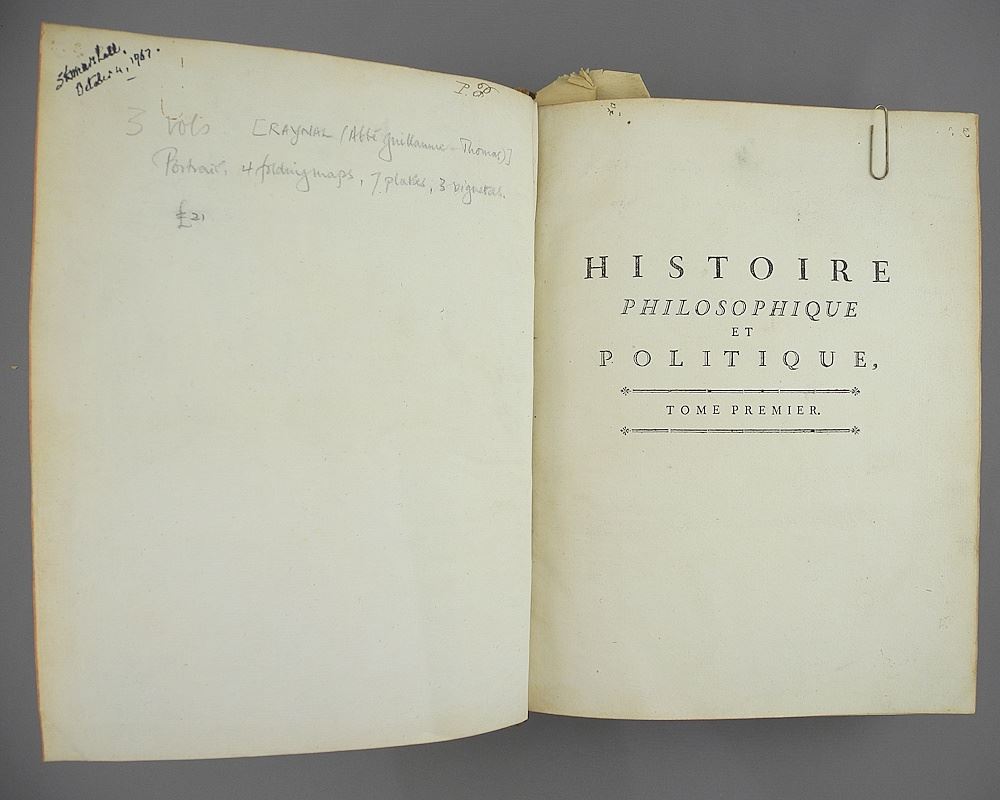 SKMarshall.
October 4, 1967.
P.P
3 vols [RAYNAL (Abbé Guillaume-Thomas)]
Portrait, 4 folding maps, 7 plates, 3 vignettes.
£21
HISTOIRE
PHILOSOPHIQUE
ET
POLITIQUE,
TOME PREMIER.